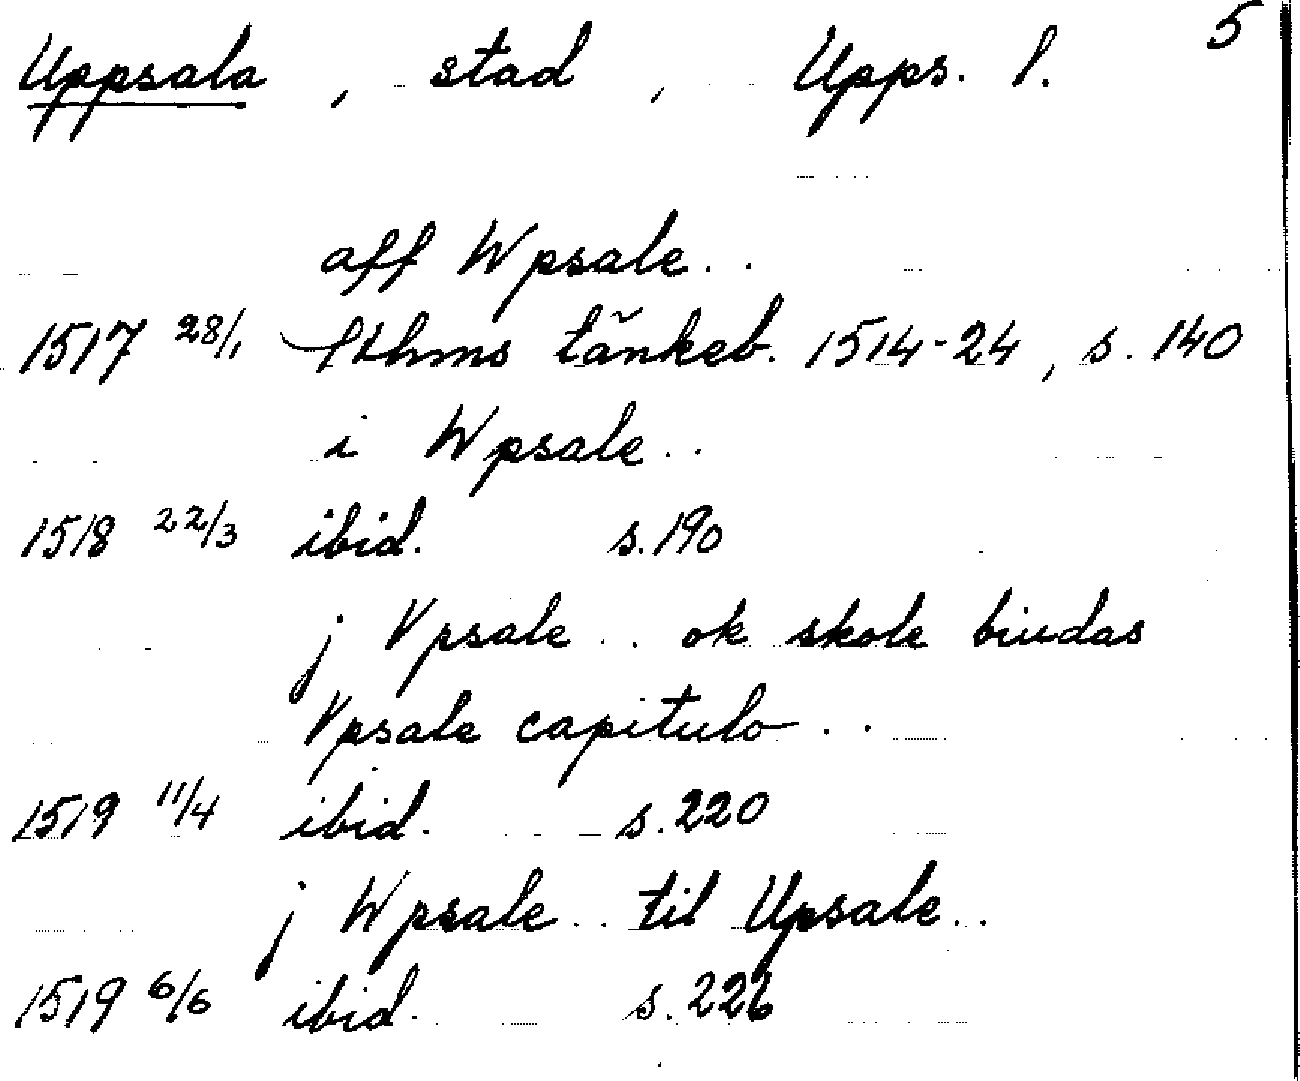 5
Uppsala, stad, Upps. l.
aff Wpsale..
1517 28/1 Sthms tänkeb. 1514-24, s. 140
i Wpsale..
1518 22/3 ibid. s. 190
j Vpsale.. ok skole biudas
Vpsale capitulo..
1519 11/4 ibid. s. 220
j Wpsale.. til Upsale..
1519 6/6 ibid. s. 226